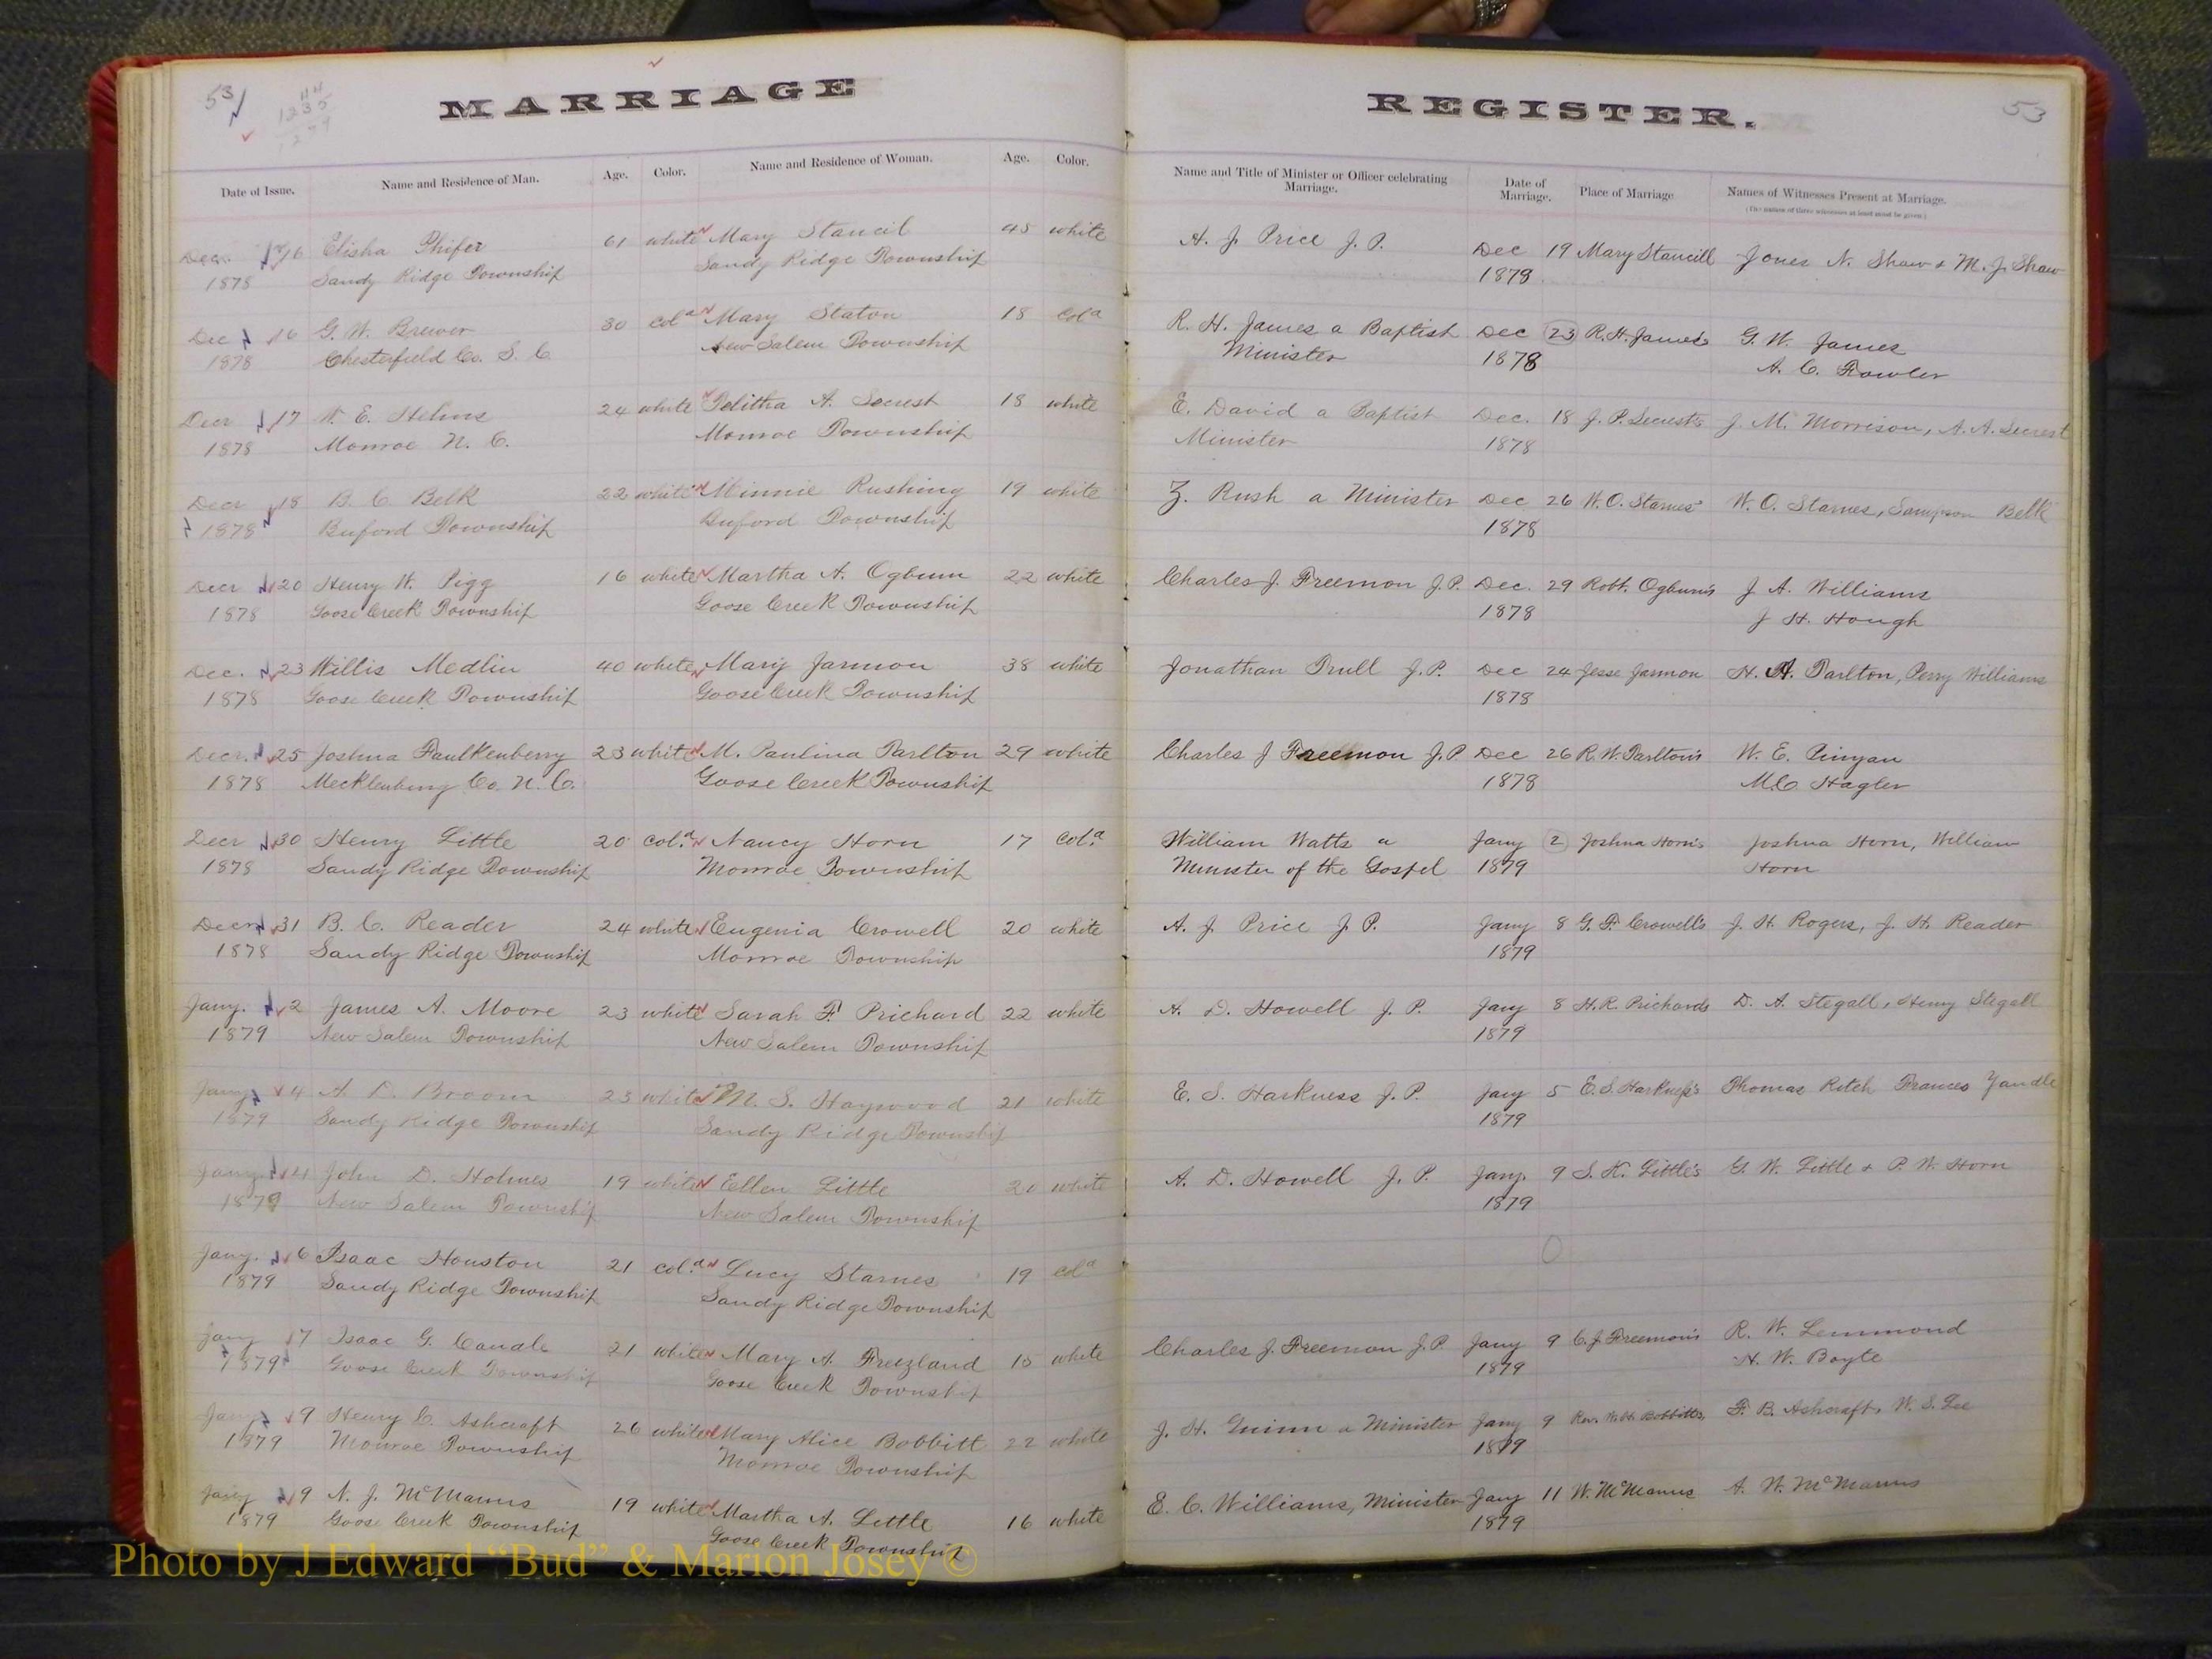 53
MARRIAGE
REGISTER.
53
Date of Issue. Name and Residence of Man. Age. Color. Name and Residence of Woman. Age. Color. Name and Title of Minister or Officer celebrating Marriage. Date of Marriage. Place of Marriage Names of Witnesses Present at Marriage.
(The names of three witnesses at least must be given)
Decr. 16 Elisha Phifer 61 white Mary Stancil 45 white A. J. Price J. P. Dec 19 Mary Stancill Jones N. Shaw & M. J. Shaw
1878 Sandy Ridge Township Sandy Ridge Township 1878
Dec 16 G. W. Brewer 30 Cold Mary Staton 18 Cold R. H. James a Baptist Dec 23 R. H. James G. W. James
1878 Chesterfield Co. S. C. New Salem Township Minister 1878 A. C. Fowler
Decr 17 W. E. Helms 24 white Telitha A. Secrest 18 white E. David a Baptist Dec. 18 J. P. Secrests J. M. Morrison, A. A. Secrest
1878 Monroe N. C. Monroe Township Minister 1878
Decr 18 B. C. Belk 22 white Minnie Rushing 19 white Z. Rush a Minister Dec 26 W. O. Starnes W. O. Starnes, Sampson Belk
1878 Buford Township Buford Township 1878
Decr 20 Henry W. Pigg 16 white Martha A. Ogburn 22 white Charles J. Freemon J.P. Dec. 29 Robt. Ogburn's J A. Williams
1878 Goose Creek Township Goose Creek Township 1878 J H. Hough
Dec. 23 Willis Medlin 40 white Mary Jarmon 38 white Jonathan Trull J.P. Dec 24 Jesse Jarmon H. A. Tarlton, Perry Williams
1878 Goose Creek Township Goose Creek Township 1878
Decr. 25 Joshua Faulkenberry 23 white M. Paulina Tarlton 29 white Charles J Freemon J.P Dec 26 R. W. Tarlton's W. E. Pinyan
1878 Mecklenburg Co. N. C. Goose Creek Township 1878 M.C. Hagler
Decr 30 Henry Little 20 Cold. Nancy Horn 17 Cold. William Watts a Jany 2 Joshua Horn's Joshua Horn, William
1878 Sandy Ridge Township Monroe Township Minister of the Gospel 1879 Horn
Decr 31 B. C. Reader 24 white Eugenia Crowell 20 white A. J Price J P. Jany 8 G. F. Crowell's J. H. Rogers, J. H. Reader
1878 Sandy Ridge Township Monroe Township 1879
Jany. 2 James A. Moore 23 white Sarah F. Prichard 22 white A. D. Howell J. P. Jany 8 H. R. Prichards D. A. Stegall, Henry Stegall
1879 New Salem Township New Salem Township 1879
Jany 4 A. D. Broom 23 white M. S. Haywood 21 white E. S. Harkness J. P. Jany 5 E. S. Harkness's Thomas Ritch Frances Yandle
1879 Sandy Ridge Township Sandy Ridge Township 1879
Jany. 4 John D. Holmes 19 white Ellen Little 20 white A. D. Howell J. P. Jany. 9 S. K. Little's G. W. Little & P. W. Horn
1879 New Salem Township New Salem Township 1879
Jany. 6 Isaac Houston 21 Cold. Lucy Starnes 19 Cold
1879 Sandy Ridge Township Sandy Ridge Township
Jany 7 Isaac G. Caudle 21 white Mary A. Freezland 18 white Charles J. Freemon J.P. Jany 9 C. J Freemon's R. W. Lemmond
1879 Goose Creek Township Goose Creek Township 1879 H. W. Boyte
Jany 9 Henry C. Ashcraft 26 white Mary Alice Bobbitt 22 white J. H. Guinn a Minister Jany 9 Rev. W. H. Bobbitts, F. B. Ashcraft, W. S. Lee
1879 Monroe Township Monroe Township 1879
Jany 9 N. J. McManus 19 white Martha A. Little 16 white E. C. Williams, Minister Jany 11 W. McManus A. W. McManus
1879 Goose Creek Township Goose Creek Township 1879
Photo by J Edward “Bud” & Marion Josey ©